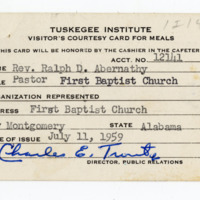 TUSKEGEE INSTITUTE
VISITOR'S COURTESY CARD FOR MEALS
THIS CARD WILL BE HONORED BY THE CASHIER IN THE CAFETER
ACCT. NO. 12141
ME Rev. Ralph D. Abernathy
LE Pastor First Baptist Church
GANIZATION REPRESENTED
DRESS First Baptist Church
Y Montgomery STATE Alabama
TE OF ISSUE July 11, 1959
Charles E. Trout
DIRECTOR, PUBLIC RELATIONS